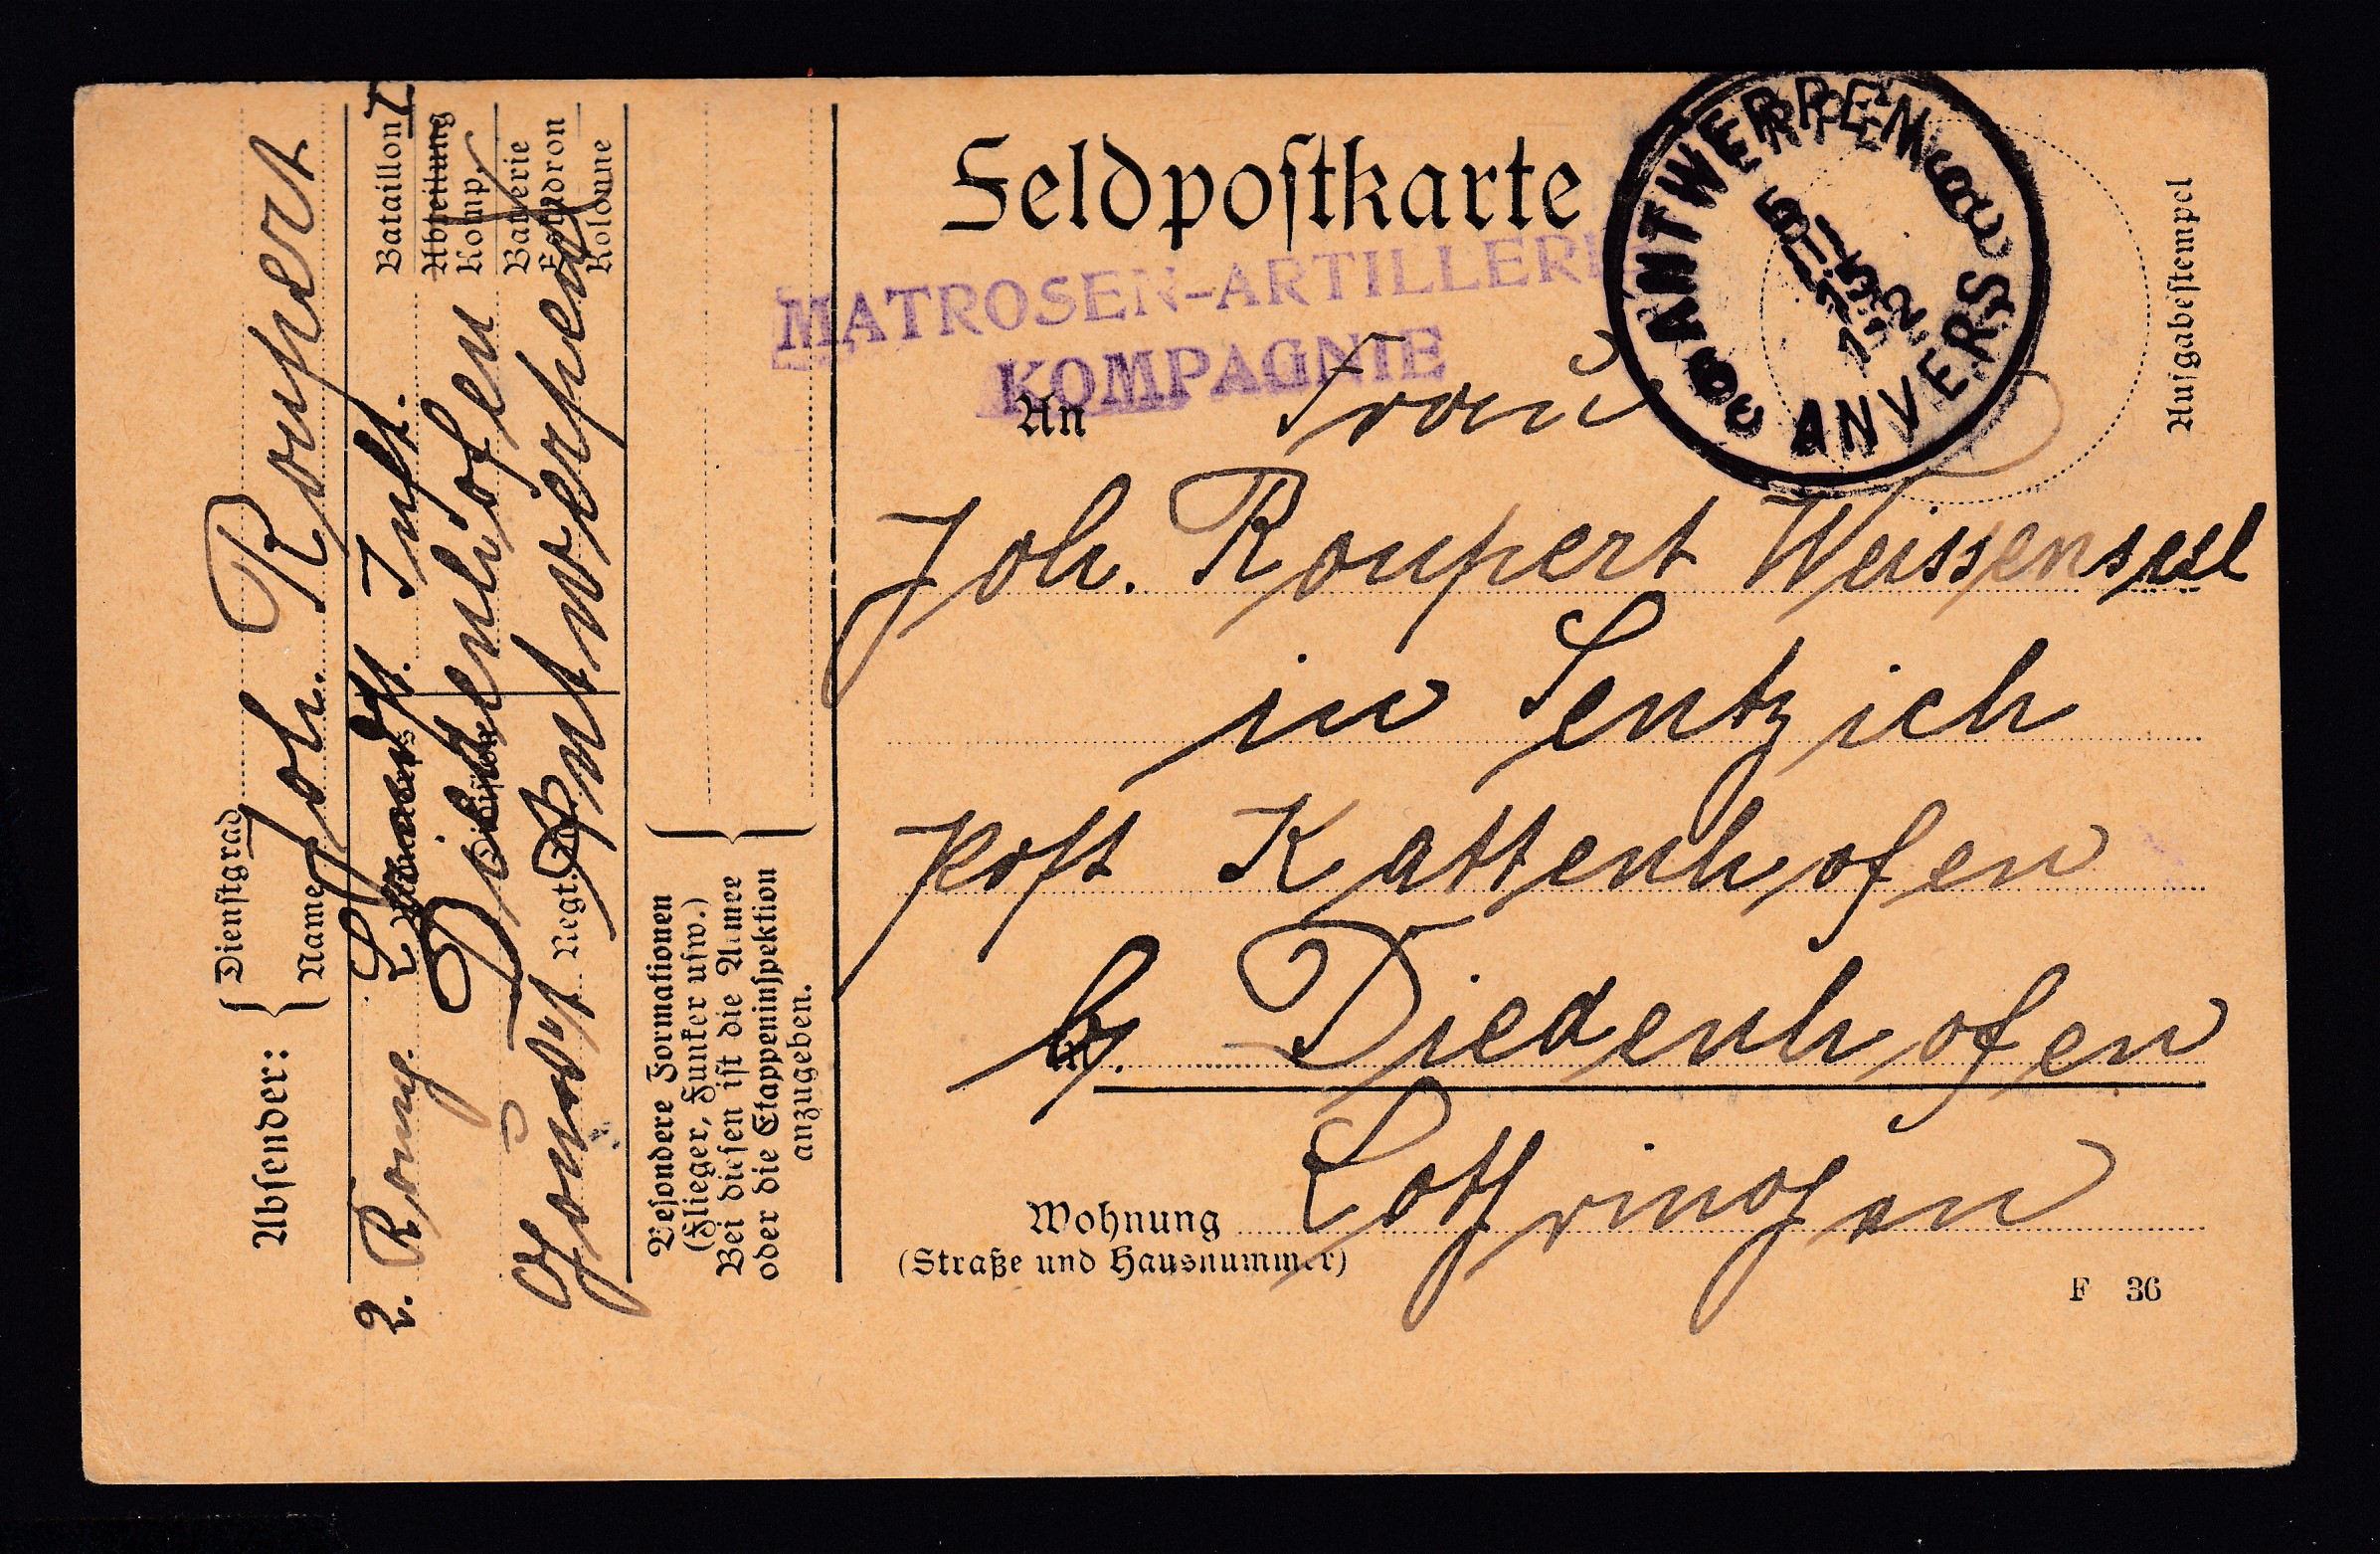 Feldpostkarte
MATROSEN-ARTILLERIE
KOMPAGNIE
ANTWERPEN
ANVERS
Aufgabestempel
An Frau
Joh. Roupert Weissensell
in Sentzich
Post Kattenhofen
b. Diedenhofen
Wohnung Lothringen
(Straße und Hausnummer)
F 36
Absender: { Dienstgrad
Name Joh. Roupert
2. Komp. Landst. Inft. Bataillon I
Abteilung
Diedenhofen Komp.
Batterie
Eskadron
Regt. Antwerpen Kolonne
Besondere Formationen
(Flieger, Funker usw.)
Bei diesen ist die Armee
oder die Etappeninspektion
anzugeben.